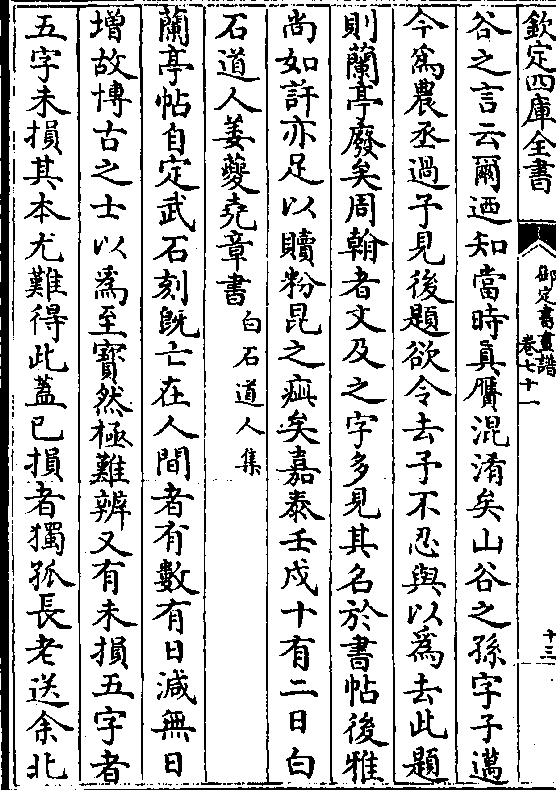 欽定四庫全書
御定書畫譜
卷七十一
十三
谷之言云爾迺知當時真贗混淆矣山谷之孫字子邁
今為農丞過予見後題欲令去予不忍與以為去此題
則蘭亭廢矣周翰者文及之字多見其名於書帖後雅
尚如許亦足以贖粉昆之疵矣嘉泰壬戌十有二日白
石道人姜夔堯章書白石道人集
蘭亭帖自定武石刻旣亡在人間者有數有日減無日
增故博古之士以為至寳然極難辨又有未損五字者
五字未損其本尤難得此蓋已損者獨孤長老送余北